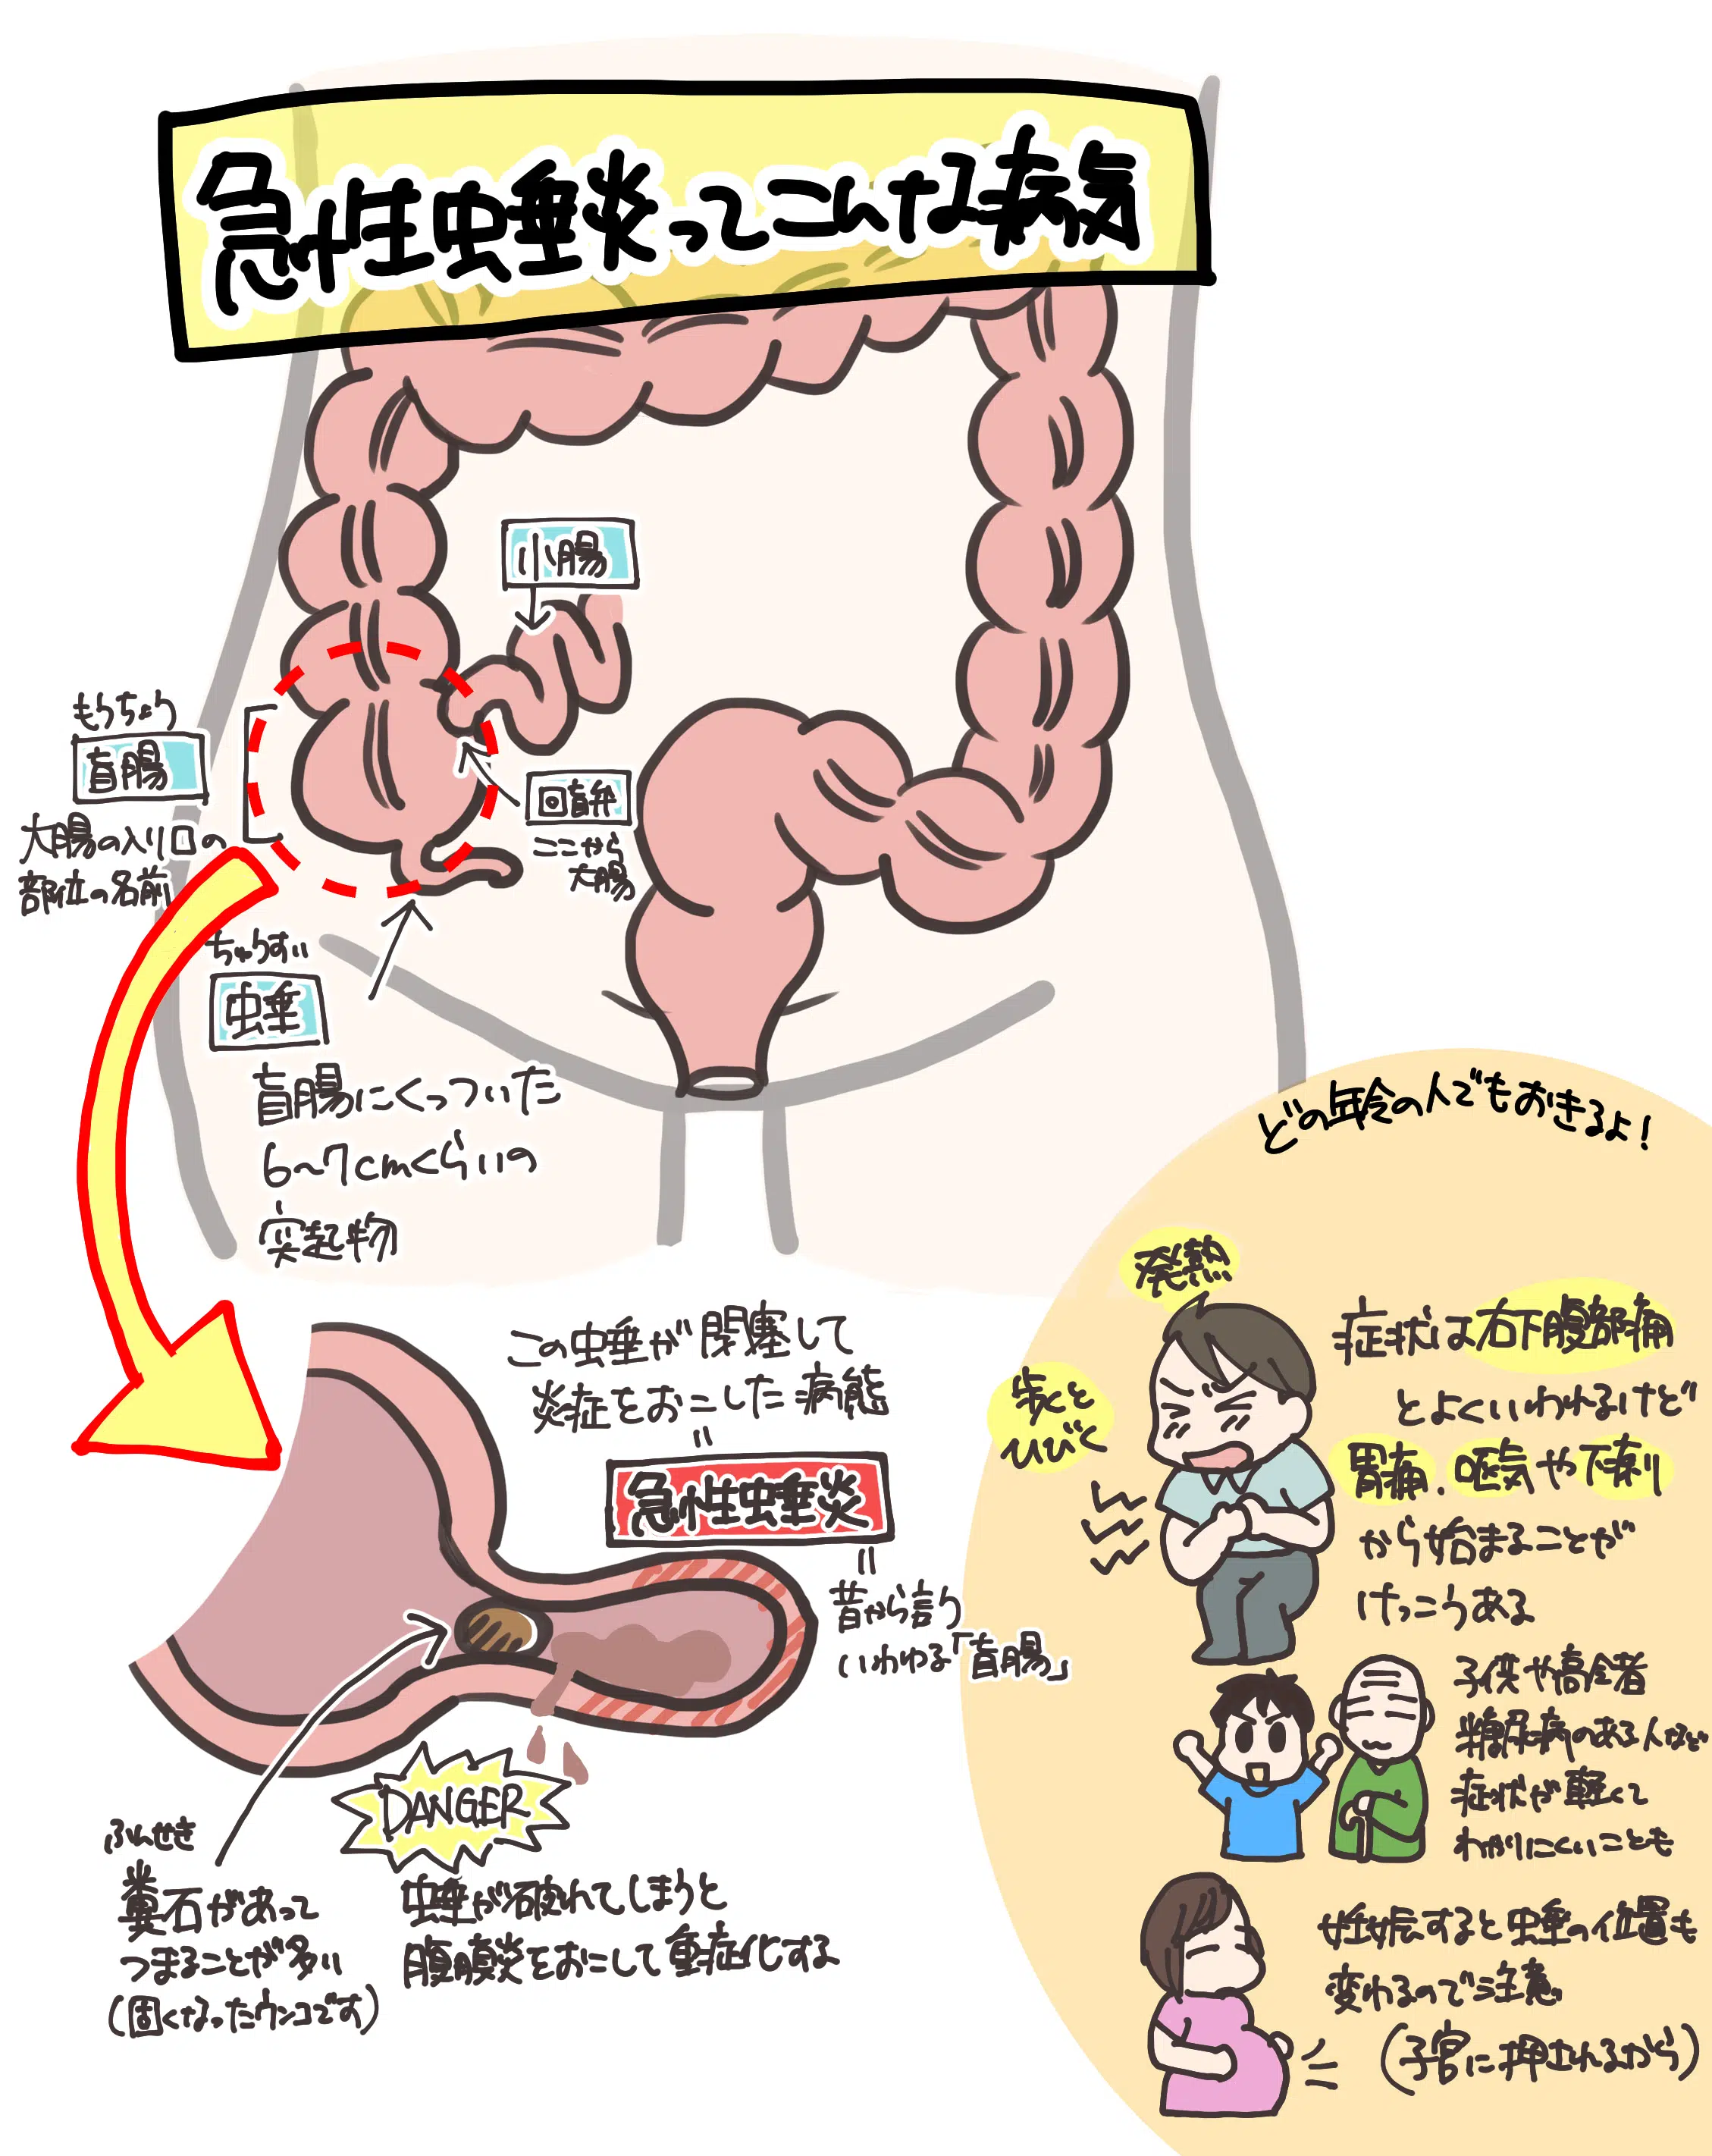 急性虫垂炎ってこんな病気
小腸
もうちょう
盲腸
大腸の入り口の
部位の名前
回盲弁
ここから
大腸
ちゅうすい
虫垂
盲腸にくっついた
6~7cmくらいの
突起物
この虫垂が閉塞して
炎症をおこした病態
=
急性虫垂炎
=
昔から言う
いわゆる「盲腸」
ふんせき
糞石があって
つまることが多い
(固くなったウンコです)
DANGER
虫垂が破れてしまうと
腹膜炎をおこして重症化する
どの年令の人でもおきるよ!
発熱
歩くと
ひびく
症状は右下腹部痛
とよくいわれるけど
胃痛、嘔気や下痢
から始まることが
けっこうある
子供や高令者
糖尿病のある人など
症状が軽くて
わかりにくいことも
妊娠すると虫垂の位置も
変わるので注意
(子宮に押されるから)